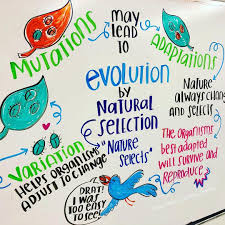 MUTATIONS
MAY
LEAD
TO
ADAPTATIONS
EVOLUTION
BY
NATURAL
SELECTION
"NATURE
SELECTS"
NATURE
ALWAYS CHANGES
AND SELECTS
VARIATION
HELPS ORGANISMS
ADJUST TO CHANGE
THE ORGANISMS
BEST ADAPTED
WILL SURVIVE
AND
REPRODUCE
DRAT!
I WAS
TOO EASY
TO SEE!